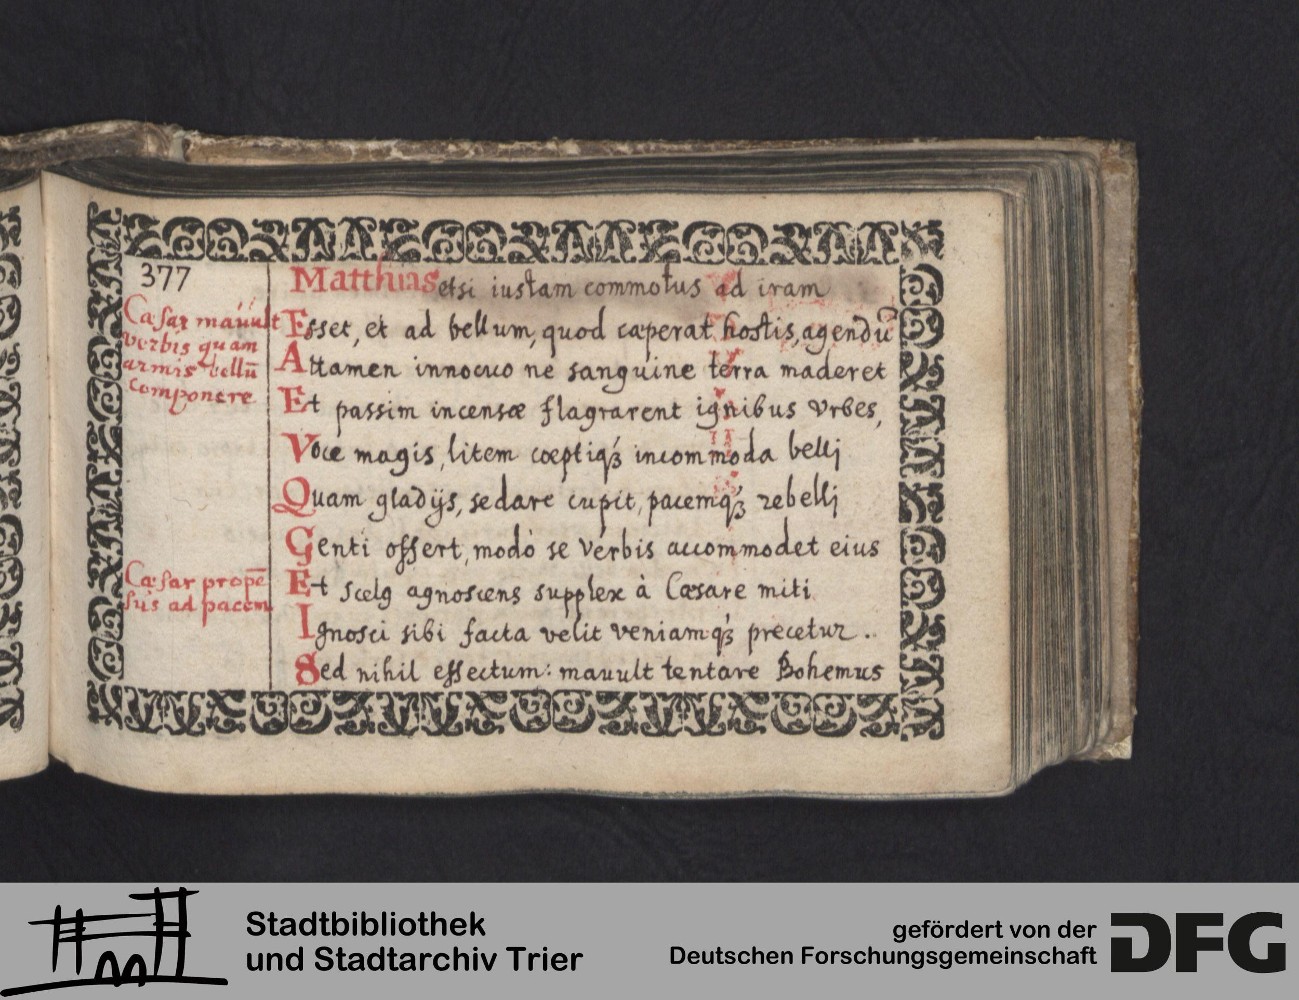 377
Cæsar mauult
verbis quam
armis bellū
componere
Cæsar propē
sus ad pacem
Matthias etsi iustam commotus ad iram
Esset, et ad bellum, quod cæperat hostis, agendū
Attamen innocuo ne sanguine terra maderet
Et passim incensæ flagrarent ignibus vrbes,
Voce magis, litem cœptiqꝫ incommoda belli
Quam gladijs, sedare cupit, pacemqꝫ rebelli
Genti offert, modò se verbis accommodet eius
Et agnoscens supplex à Cæsare miti
Ignosci sibi facta velit veniamqꝫ precetur..
Sed nihil effectum: mauult tentare Bohemus
Stadtbibliothek
und Stadtarchiv Trier
gefördert von der
Deutschen Forschungsgemeinschaft
DFG